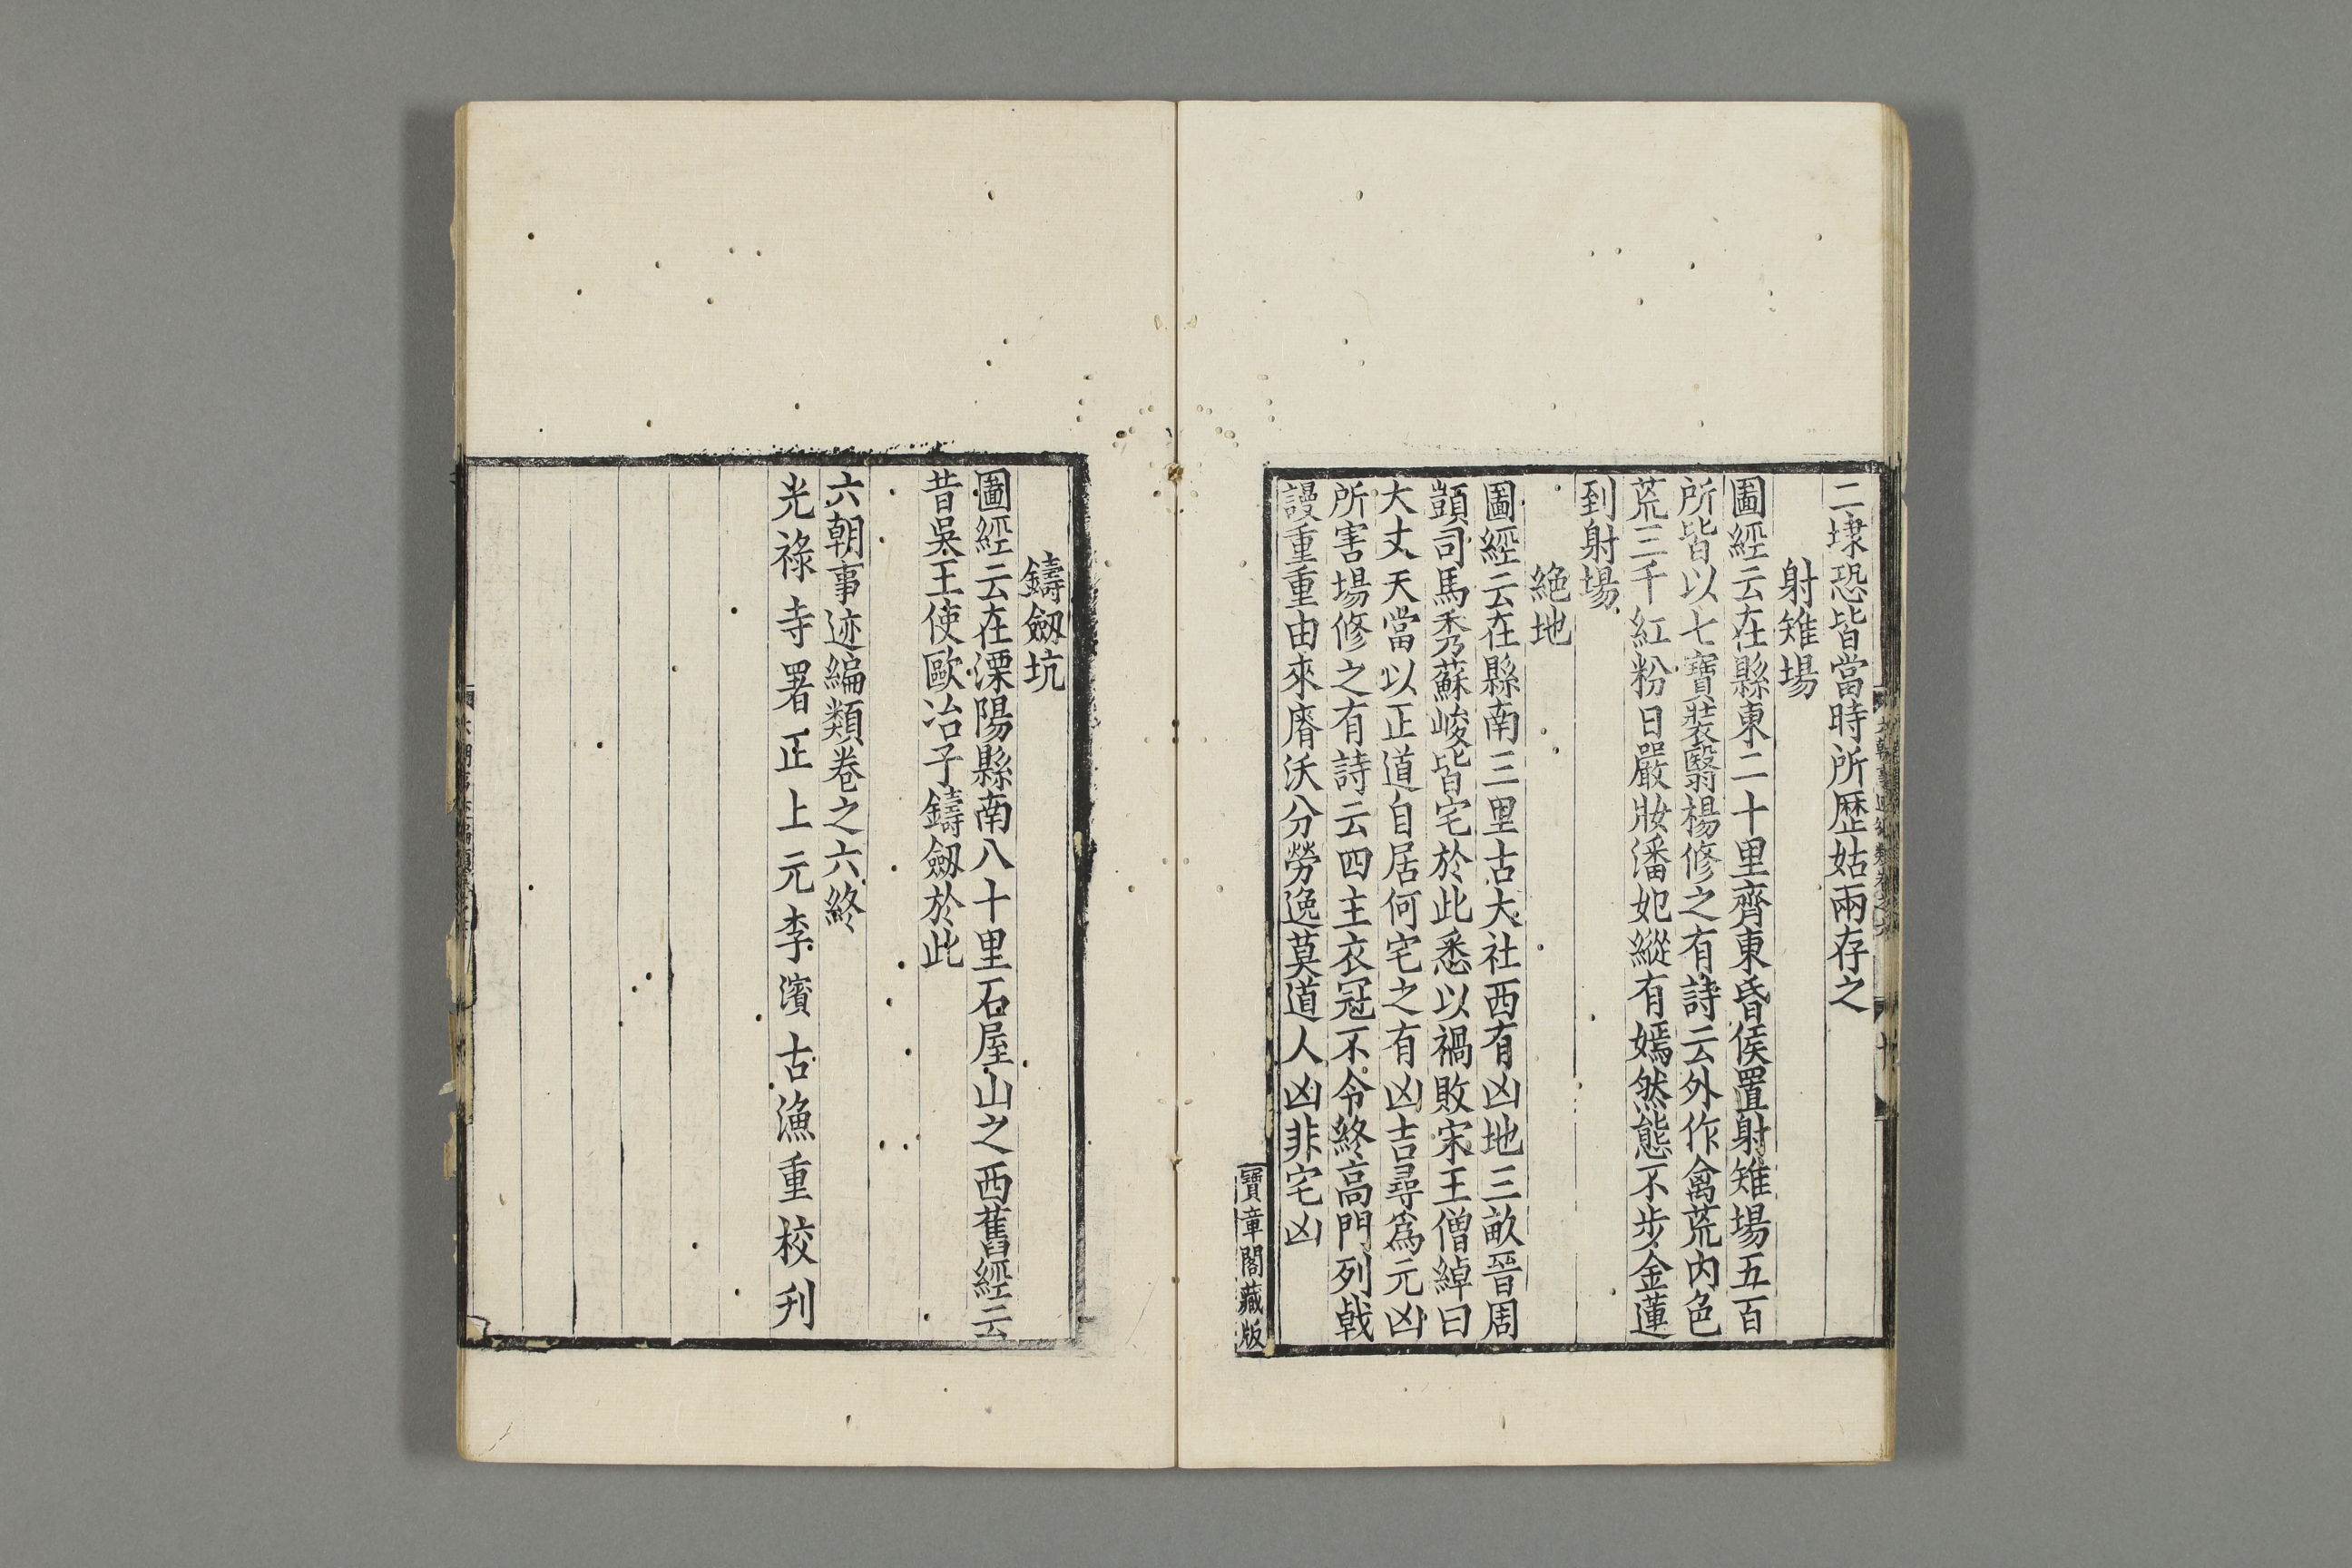 二埭恐皆當時所歷姑兩存之
射雉場
圖經云在縣東二十里齊東昏侯置射雉場五百
所皆以七寶裝翳楊修之有詩云外作禽荒内色
荒三千紅粉日嚴妝潘妃縱有嫣然態不步金蓮
到射場
絶地
圖經云在縣南三里古大社西有凶地三畝晉周
顗司馬秀蘇峻皆宅於此悉以禍敗宋王僧綽曰
大丈夫當以正道自居何宅之有凶吉尋爲元凶
所害場修之有詩云四主衣冠不令終高門列戟
謾重重由來瘠沃分勞逸莫道人凶非宅凶
寶章閣藏版
鑄劒坑
圖經云在溧陽縣南八十里石屋山之西舊經云
昔吳王使歐冶子鑄劒於此
六朝事迹編類卷之六終
光祿寺署正上元李濱古漁重校刋